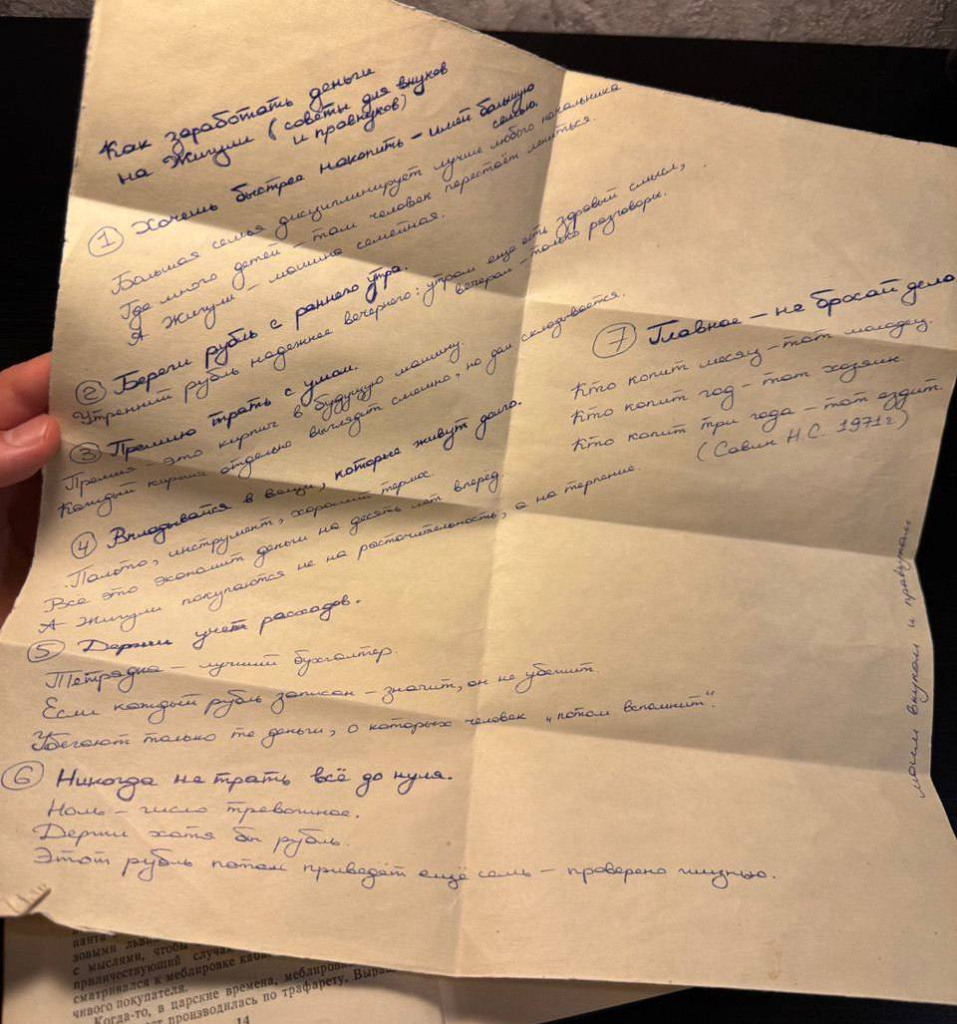 Как заработать деньги
на Жигули (советы для внуков
и правнуков)
① Хочешь быстрее накопить – имей большую
семью.
Большая семья дисциплинирует лучше любого начальника
Где много детей – там человек перестаёт лениться.
А Жигули – машина семейная.
② Береги рубль с раннего утра.
Утренний рубль надежнее вечернего: утром еще есть здравый смысл,
вечером – только разговоры.
③ Премию трать с умом.
Премия – это кирпич в будущую машину.
Каждый кирпич отдельно выглядит смешно, но дом складывается.
④ Вкладывайся в вещи, которые живут долго.
Пальто, инструмент, хороший термос
Все это экономит деньги на десять лет вперёд
А Жигули покупаются не на расточительность, а на терпение.
⑤ Держи учет расходов.
Тетрадка – лучший бухгалтер.
Если каждый рубль записан – значит, он не убежит.
Убегают только те деньги, о которых человек „потом вспомнит“.
⑥ Никогда не трать всё до нуля.
Ноль – число тревожное.
Держи хотя бы рубль.
Этот рубль потом приведёт ещё семь – проверено жизнью.
⑦ Главное – не бросай дело
Кто копит месяц – тот молодец.
Кто копит год – тот хозяин
Кто копит три года – тот ездит.
(Савин Н.С. 1971г)
моим внукам и правнукам
зовыми
с мыслями, чтобы
приличествующий случа
сматривался к меблировке каби
чивого покупателя.
Когда-то, в царские времена, меблиров
производилась по трафарету. Выра
14